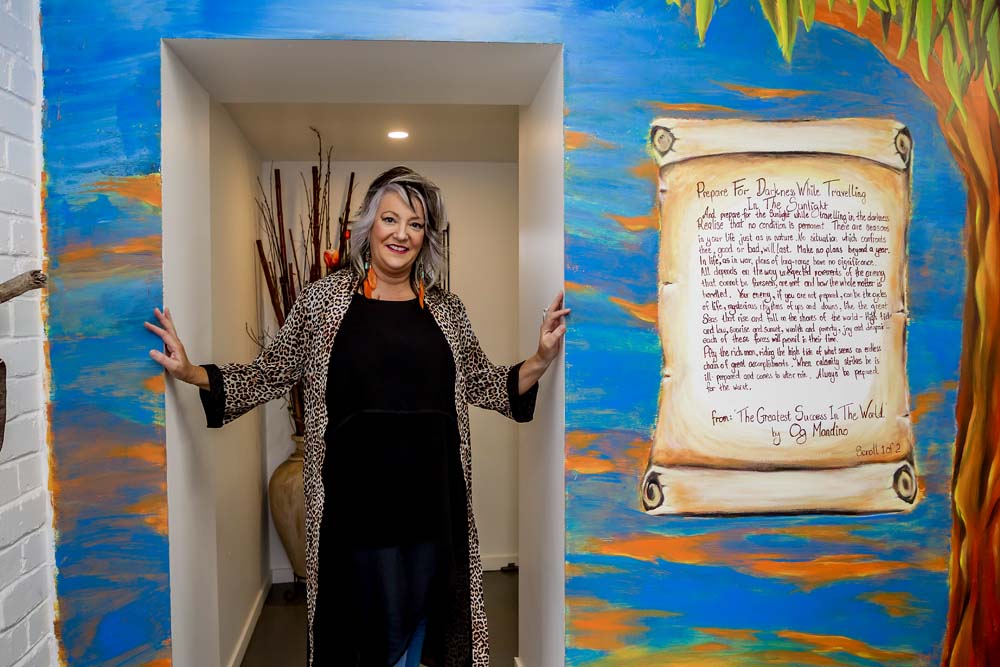 Prepare For Darkness While Travelling
In The Sunlight
And prepare for the sunlight while travelling in the darkness
Realise that no condition is permanent. There are seasons
in your life just as in nature. No situation which confronts
they, good or bad, will last. Make no plans beyond a year.
In life, as in war, plans of long-range have no significance.
All depends on the way unexpected movements of the enemy
that cannot be foreseen, are met and how the whole matter is
handled. Your enemy, if you are not prepared, can be the cycles
of life, mysterious rhythms of ups and downs, like the great
Seas that rise and fall on the shores of the world - High tide
and low, sunrise and sunset, wealth and poverty, joy and despair -
each of these forces will prevail in their time.
Pity the rich man, riding the high tide of what seems an endless
chain of great accomplishments. When calamity strikes he is
ill-prepared and comes to utter ruin. Always be prepared
for the worst.
from: 'The Greatest Success In The World.'
by Og Mandino
Scroll 1 of 2